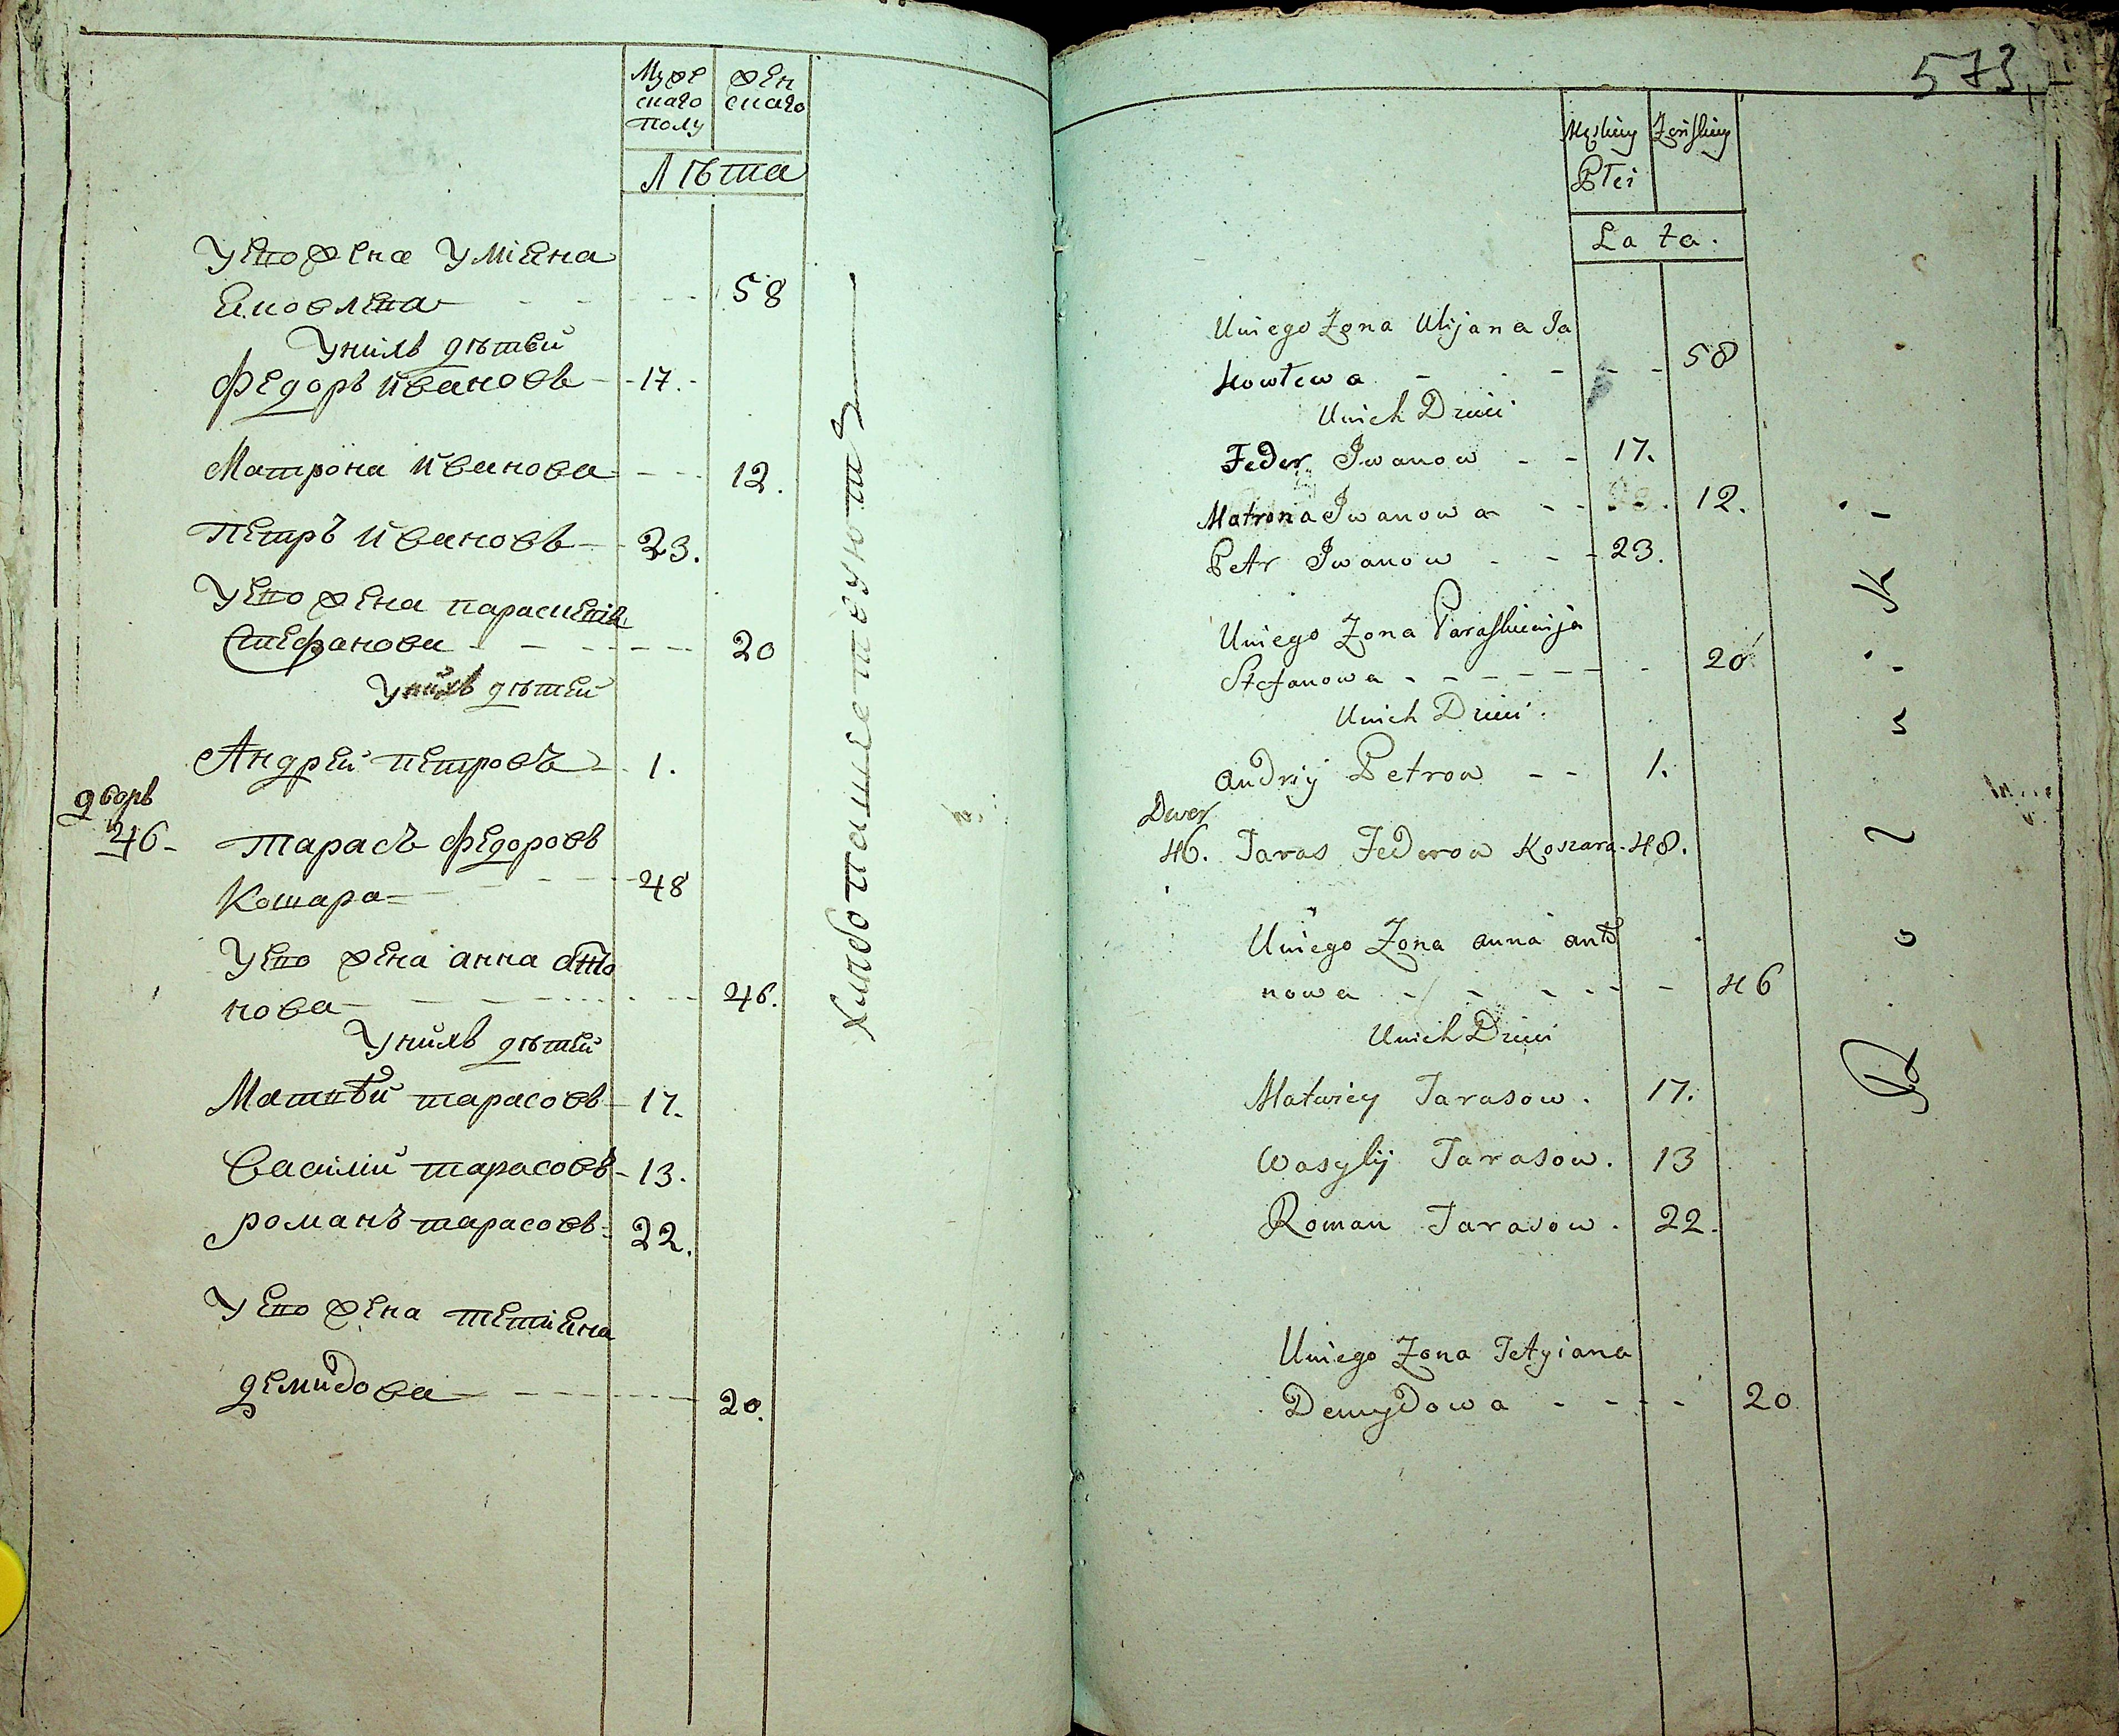 Муже
скаго
полу
жен
скаго
Лѣта
Уего жена Уліяна
Яковлева - - - 58
Унихъ дѣтей
Федоръ Ивановъ - 17.
Матрона Иванова - - 12.
Петръ Ивановъ - 23.
Уего жена параскевія
Стефанова - - - - 20
Унихъ дѣтей
Андрей петровъ - 1.
дворъ
46. Тарасъ Федоровъ
Кошара - - - 48
Уего жена анна анто
нова - - - - 46.
Унихъ дѣтей
Матвѣй тарасовъ - 17.
Василій тарасовъ - 13.
романъ тарасовъ - 22.
Уего жена тетіяна
демидова - - - - 20.
хлебопашествуютъ
573
Męskiey
Płci
Żenskiey
Lata.
Uniego Zona Ulijana Ja
kowlewa - - - - 58
Unich Dzieci
Feder Iwanow - - 17.
Matrona Iwanowa - - 12.
Petr Iwanow - - - 23.
Uniego Zona Paraskiewija
Stefanowa - - - - - 20
Unich Dzieci.
Andriy Petrow - - 1.
Dwor
46. Taras Federow Koszara - 48.
Uniego Zona anna anto
nowa - - - - - 46
Unich Dzieci
Matwiey Tarasow. 17.
Wasylij Tarasow. 13
Roman Tarasow. 22.
Uniego Zona Tetyiana
Demydowa - - - - 20
Rolnik